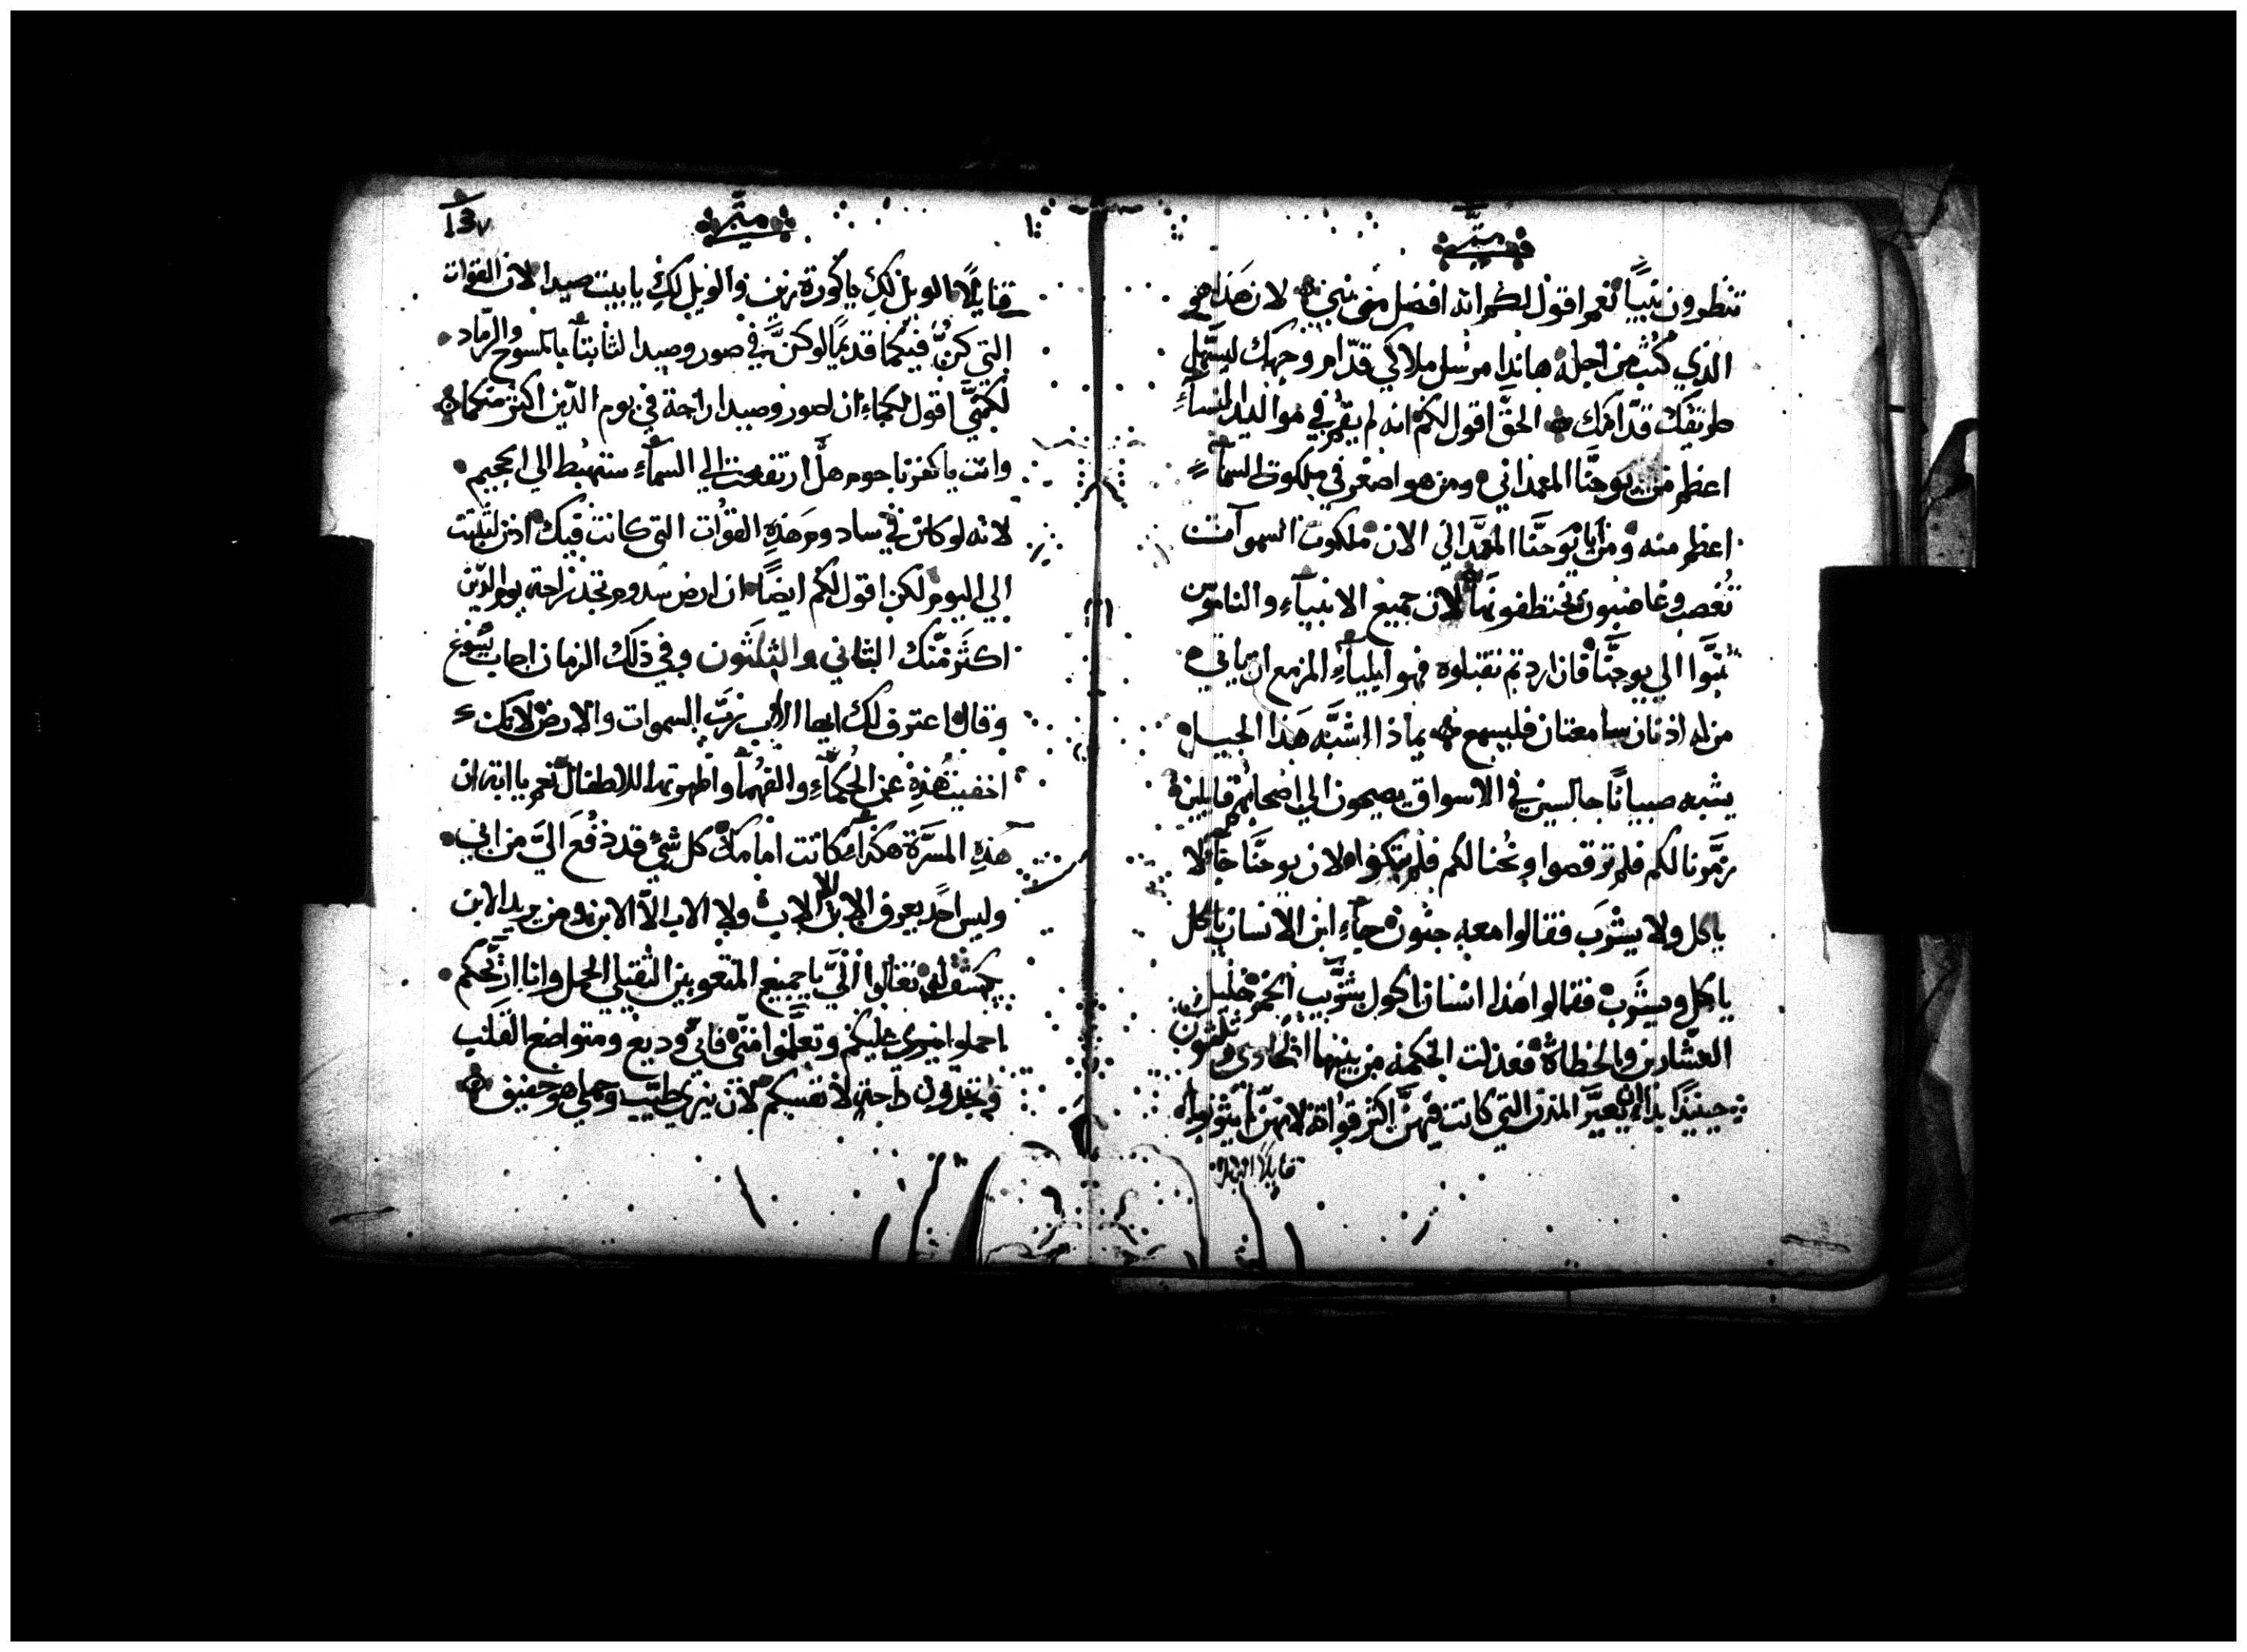 متّى
تنظرون نبيّاً نعم اقول لكم انه افضل من نبي لان هَذا هو
الذي كُتب من اجله هانذا مرسل ملاكي قدّام وجهك ليسَهّل
طريقك قدّامك الحقّ اقول لكم انه لم يقم في مواليد النسآءِ
اعظم من يوحنَّا المعمداني ومن هو اصغر في ملكوت السمآءِ
اعظم منه ومن ايام يوَحنَّا المعمَّداني الان ملكوت السموات
تُغصب وغاصبون يختطفونها لان جميع الانبيآءِ والناموس
تنبَّوا الي يوحنَّا فان اردتم تقبلوه فهو ايليآءِ المزمع ان ياتي
من له اذنان سامعتان فليسمع بماذا اشبَّه هَذا الجيل
يشبه صبيانًا جالسين في الاسواق يصيحون الي اصحابهم قايلين
زمَّرنا لكم فلم ترقصوا ونُحنا لكم فلم تبكوا لان يوحنَّا جآءَ لا
ياكل ولا يشرَب فقالوا معه جنون جآءِ ابن الانسان ياكل
ياكل ويشرَب فقالوا هَذا انسان اكول بشرّيب الخمر خليل
العشارين والخطاة فعذلت الحكمه من بينها الحادي وثلثون
حينيذًا بدا يعيَّر المدن التي كانت فيهنَّ اكثر قواته لانهنّ لم يتوبوا
قايلًا الويل
متّى
١٣٧
قايلًا الويل لكِ يا كُورة زين والويل لكِ يا بيت صيدا لان القوات
التي كنَّ فيكما قديمًا لو كنَّ في صور وصيدا لتابتآ بالمسوح والرّماد
لكنّي اقول لكما ان لصور وصيدا راحة في يوم الدّين اكثر منكما
وانت يا كفرناحوم هل ارتفعت الي السمآءِ ستهبُط الي الجحيم
لانه لو كان في سادوم هَذهِ القوّات التي كانت فيك اذن لثبتت
الي اليوم لكن اقول لكم ايضًا ان ارض سدوم تجد راحة يوم الدّين
اكثَر منّك الثاني والثلَثون وفي ذلك الزمان اجاب يسُوع
وقال اعترف لك ايها الآب رَبّ السموات والارض لانك
اخفيت هذهِ عن الحُكمآءِ والفهُمآ واظهرتها للاطفال نعم يا ابه ان
هَذهِ المسَرَّة هكذا كانت امامك كل شيٍ قد دُفعَ اليَّ من ابي
وليس احد يعرف الابن الا الاب ولا الاب الَّا الابن ومن يريد الابن
يكشف له تعالوا اليَّ يا جميع المتعوبين الثقيلي الحمل وانا اريّحكم
احملوا نيري عليكم وتعلَّموا منّي فانّي وديع ومتواضع القَلب
وتجدون راحة لانفسكم لان نيري طيّب وحملي هو خفيف